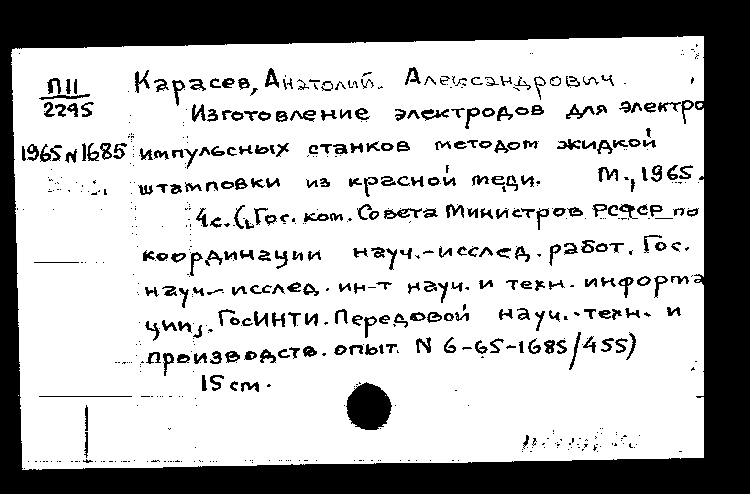 П11
2295
1965 N 1685
Карасев, Анатолий Александрович.
Изготовление электродов для электро
импульсных станков методом жидкой
штамповки из красной меди. М., 1965.
4с. (Гос. ком. Совета Министров РСФСР по
координации науч.-исслед. работ. Гос.
науч.-исслед. ин-т науч. и техн. информа
ции, ГосИНТИ. Передовой науч.-техн. и
производств. опыт N 6-65-1685/455)
15 см.